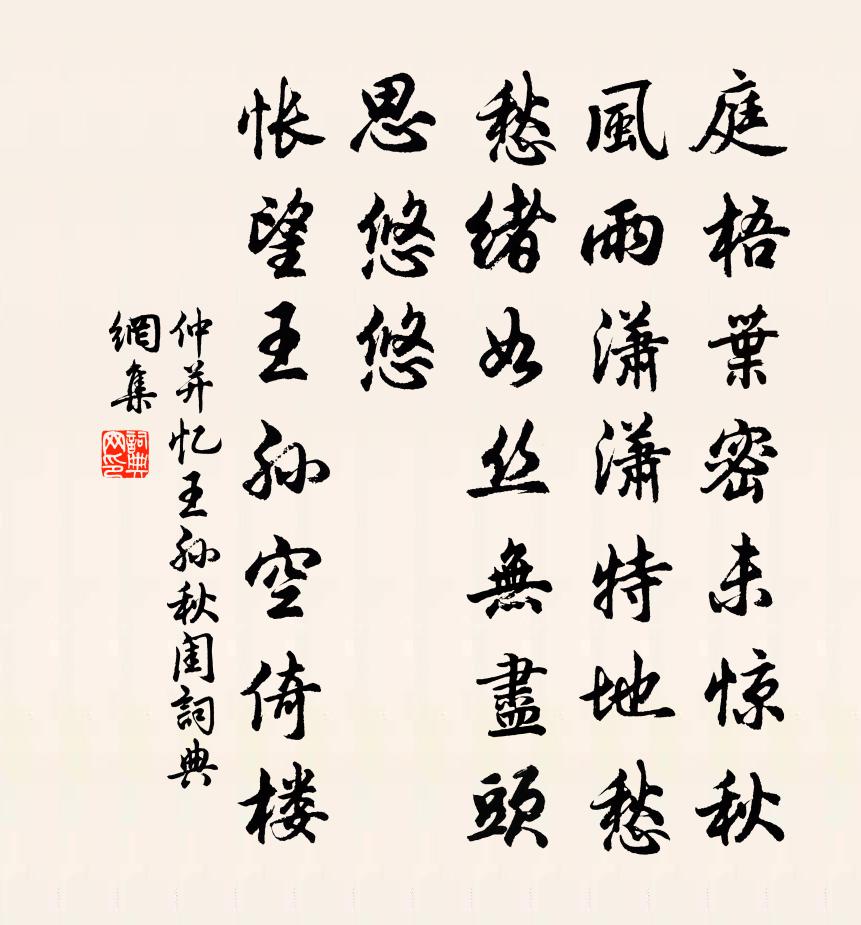 庭梧葉密未惊秋
風雨瀟瀟特地愁
愁緒如丝無盡頭
思悠悠
悵望王孙空倚楼
仲并忆王孙秋闺詞典
網集
詞典
网印